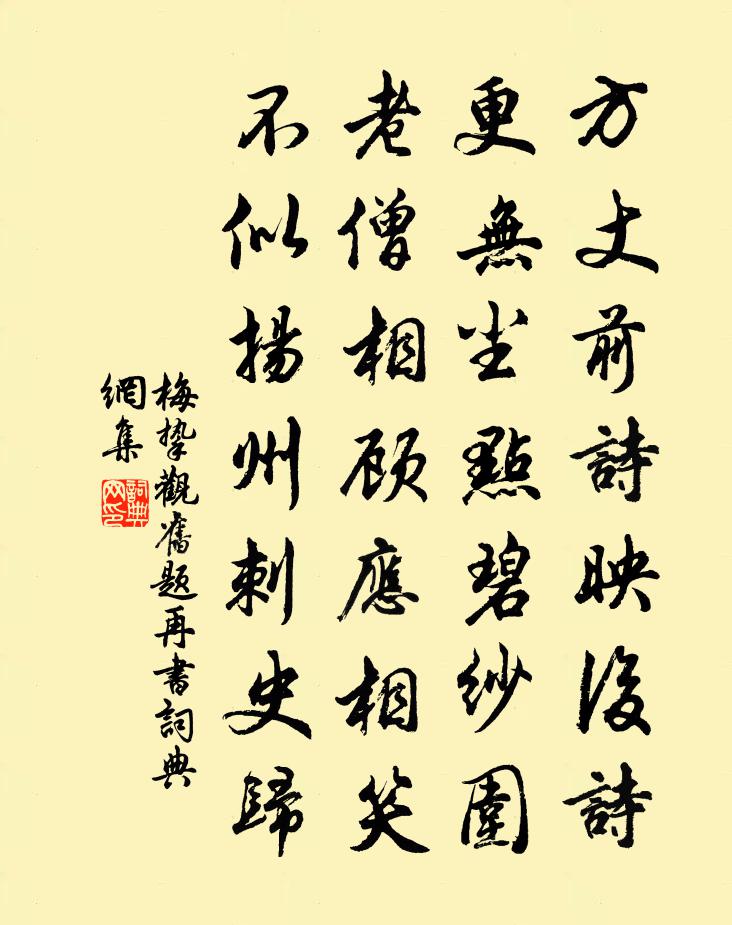 方丈前詩映後詩
更無尘點碧紗圍
老僧相顾應相笑
不似揚州刺史歸
梅挚觀舊题再書詞典
網集
詞典
网印